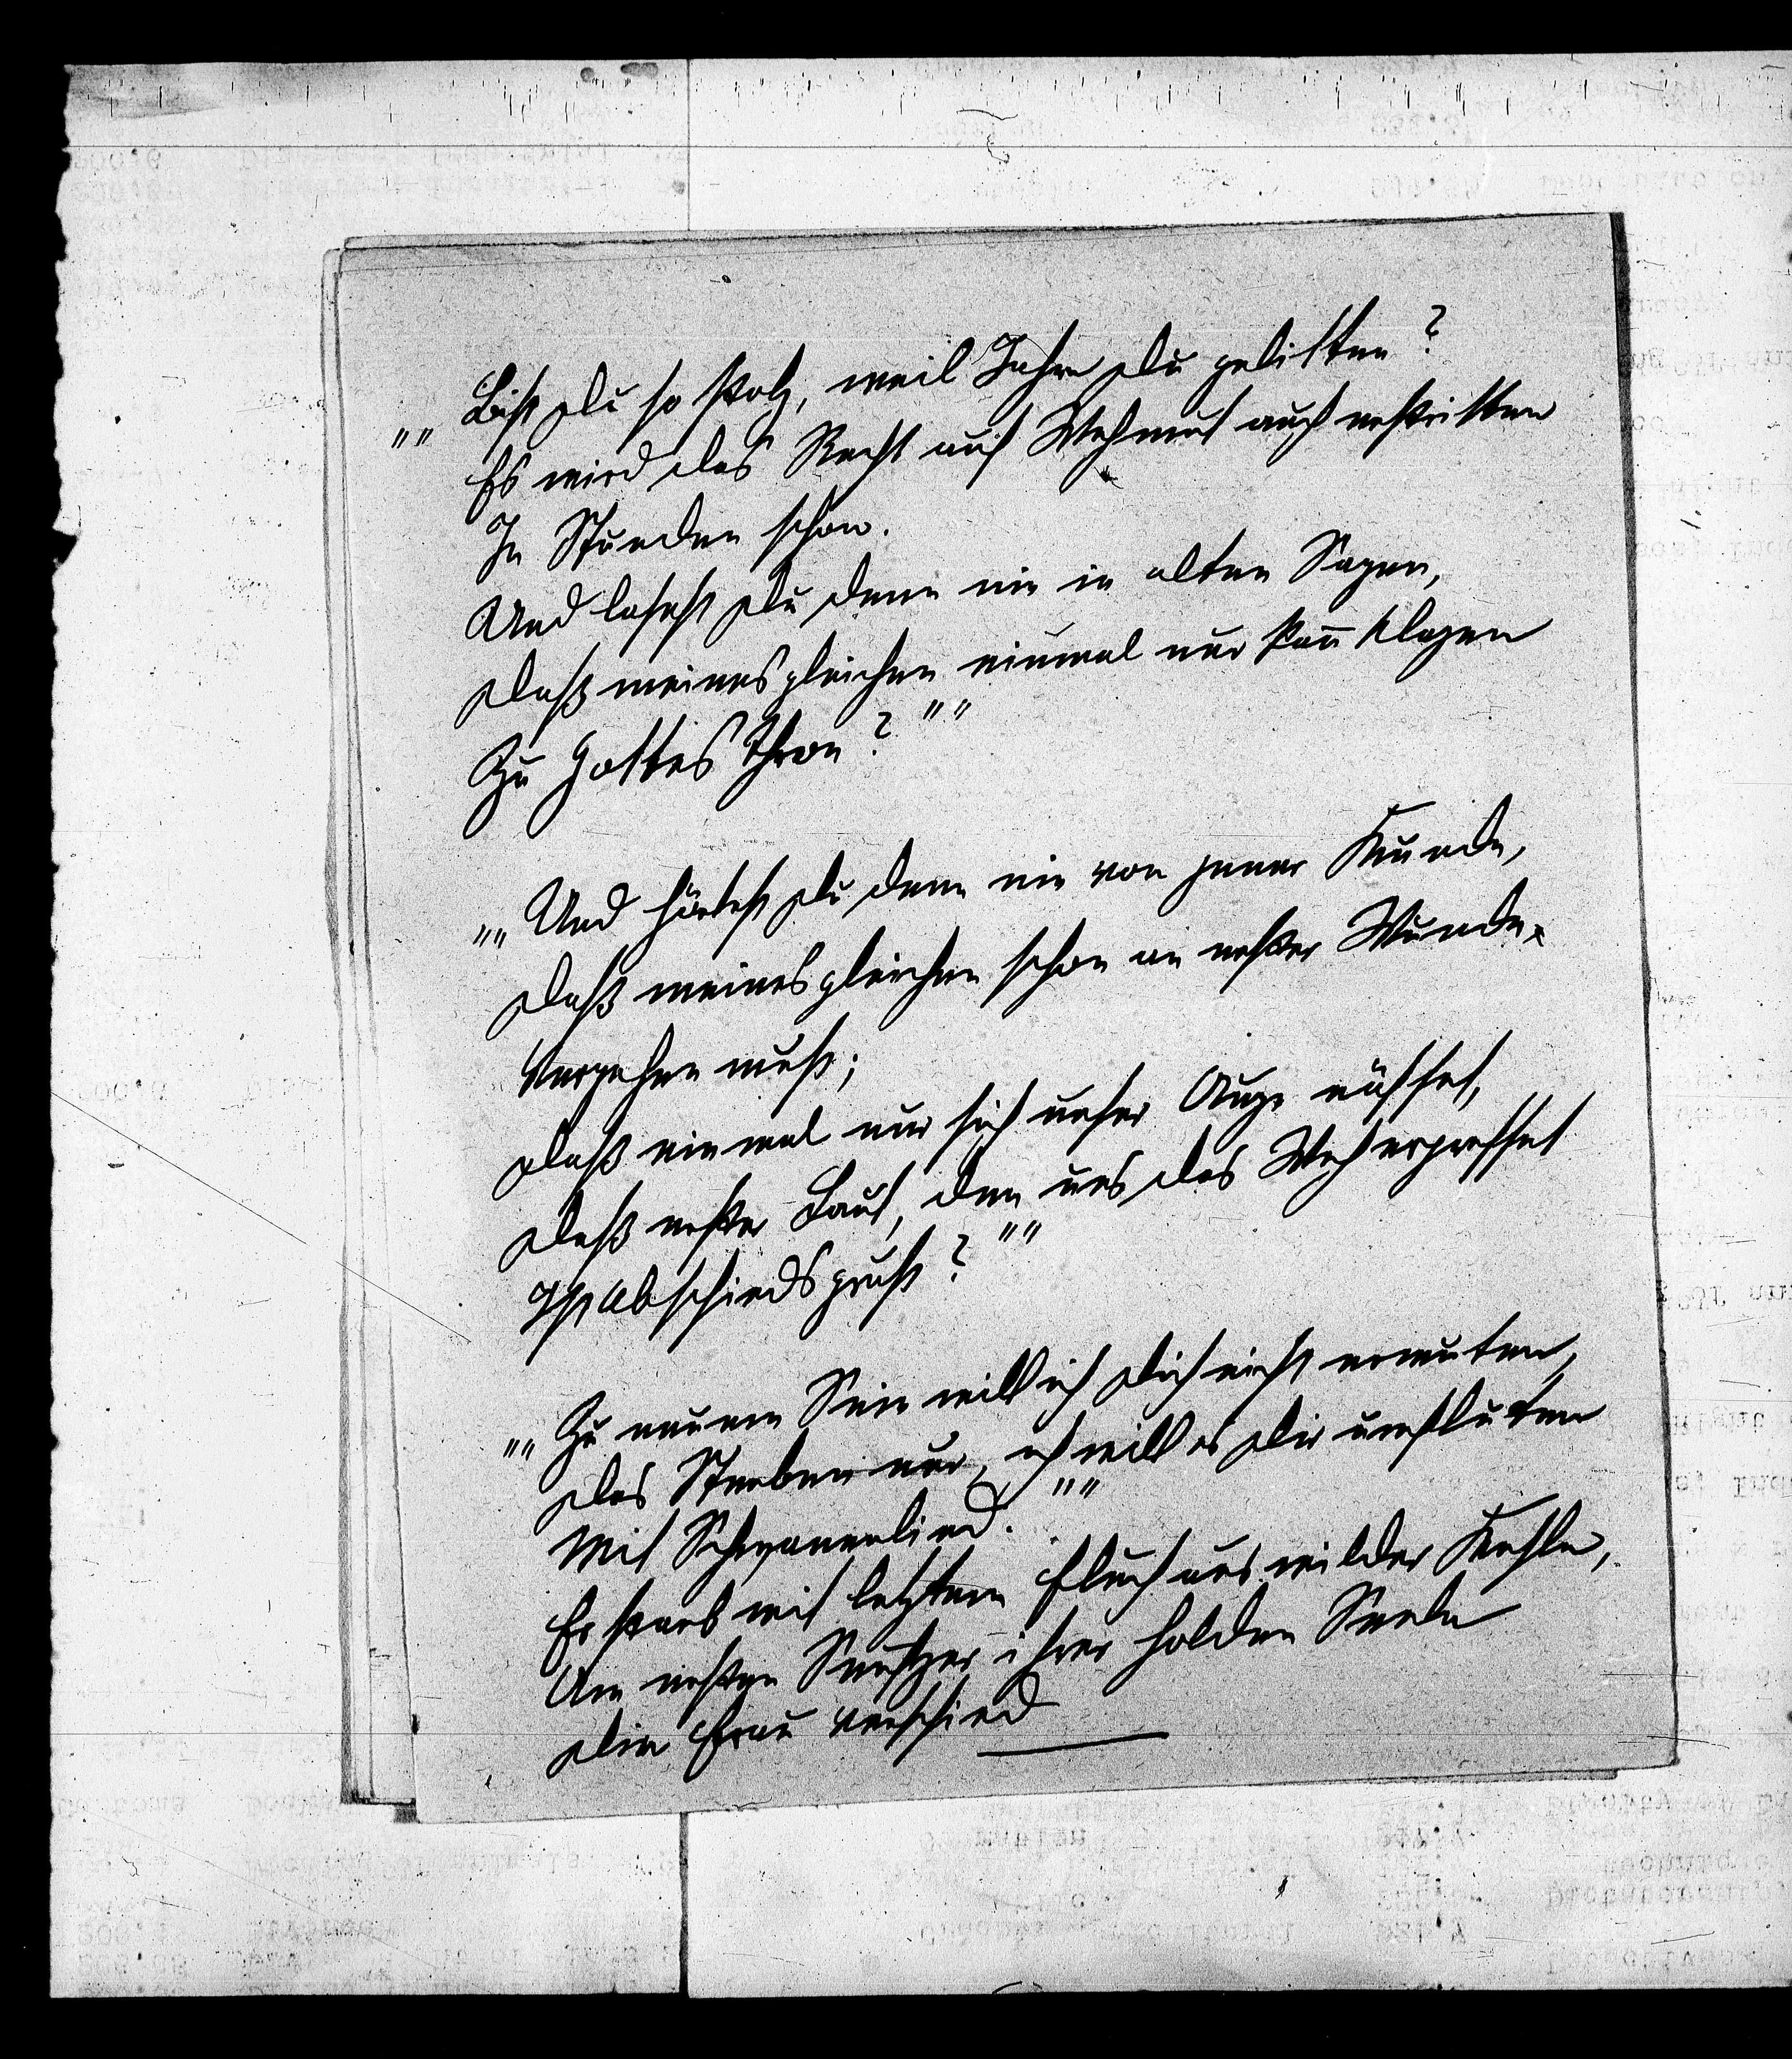 "" Bist du so stolz, weil Jahre du gelitten?
Es wird das Recht auf Wehmut auch erstritten
In Stunden schon.
Und lasest du denn nie in alten Sagen,
Daß meinesgleichen einmal nur kan̄ klagen
Zu Gottes Thron? ""
"" Und hörtest du denn nie von jener Kunde,
Daß meinesgleichen schon an erster Wunde
Vergehen muß;
Daß einmal nur sich unser Auge nässet,
Daß erster Laut, den uns das Weh erpresset
Ist Abschiedsgruß? ""
"" Zu neuem Sein will ich dich nicht ermuten,
Das Sterben nur, ich will es dir umfluten
Mit Schwanenlied. ""
Er starb mit letztem Fluch aus wilder Kehle,
Am ersten Seufzer ihrer holden Seele
Die Frau verschied